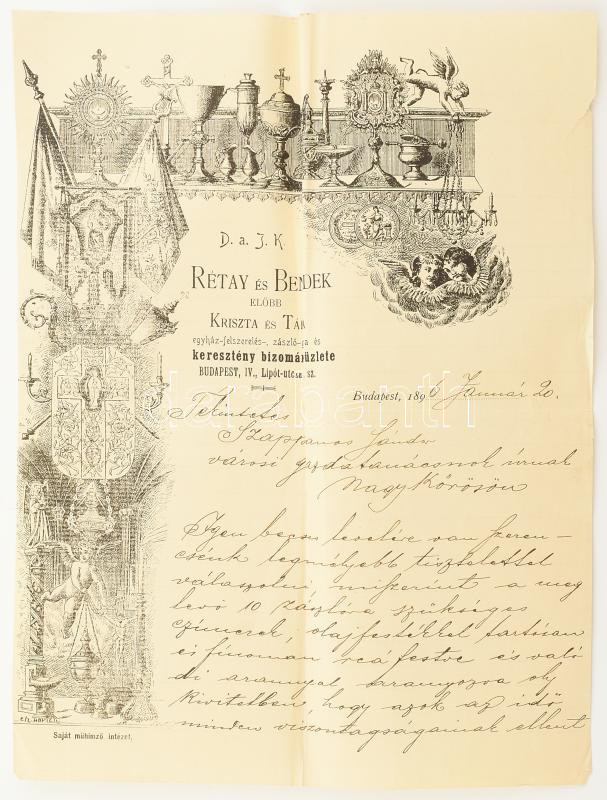 D. a. J. K.
RÉTAY ÉS BENDEK
ELŐBB
KRISZTA ÉS TÁR
egyház-felszerelés-, zászló- és
keresztény bizományüzlete
BUDAPEST, IV., Lipót-utcza sz.
Budapest, 1896 Január 20.
Tekintetes
Szappanos Sándor
városi gazdatanácsnok úrnak
Nagy Kőrösön
Igen becses levelére van szeren-
csénk legmélyebb tisztelettel
válaszolni, miszerint a meg
levő 10 zászlóra szükséges
czímerek, olajfestékkel tartósan
és finoman reá festve és való
di arannyal aranyozva oly
kivitelben, hogy azok az idő
minden viszontagságainak ellent
Saját műhimző intézet.
darabanth